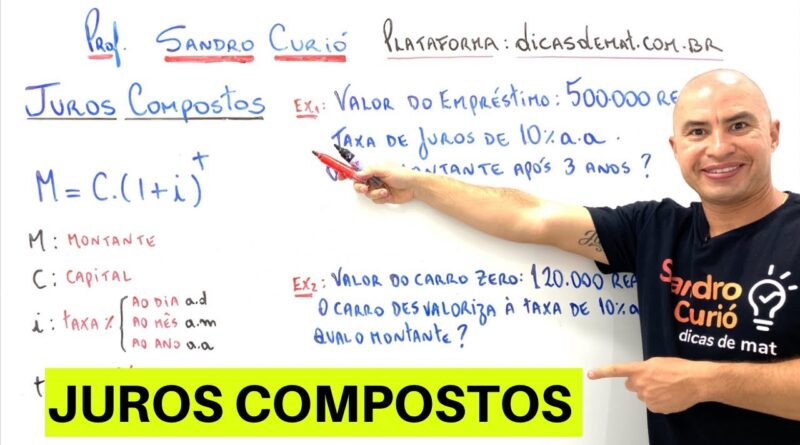 Prof. SANDRO CURIÓ PLATAFORMA: dicasdemat.com.br
JUROS COMPOSTOS
M = C.(1+i)^t
M: MONTANTE
C: CAPITAL
i: TAXA %
AO DIA a.d
AO MÊS a.m
AO ANO a.a
t
EX1: VALOR DO EMPRÉSTIMO: 500.000 RE
TAXA DE JUROS DE 10% a.a.
MONTANTE APÓS 3 ANOS?
EX2: VALOR DO CARRO ZERO: 120.000 REA
O CARRO DESVALORIZA À TAXA DE 10% a
QUAL O MONTANTE?
Sandro
Curió
dicas de mat
JUROS COMPOSTOS